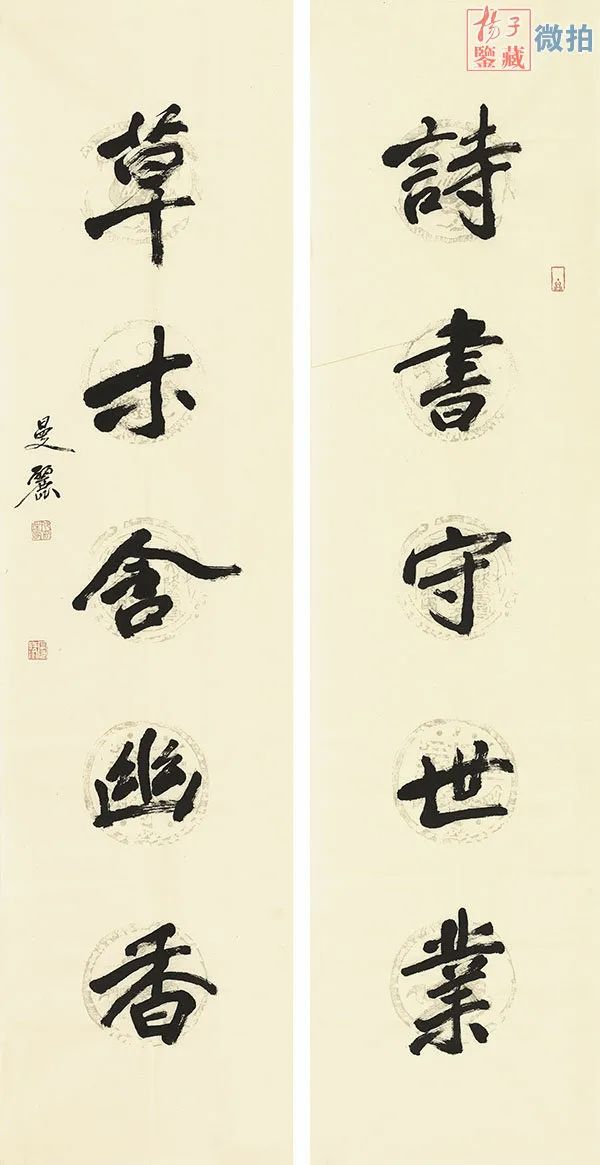 揚子
鑒藏
微拍
詩書守世業
草木含幽香
曼麗